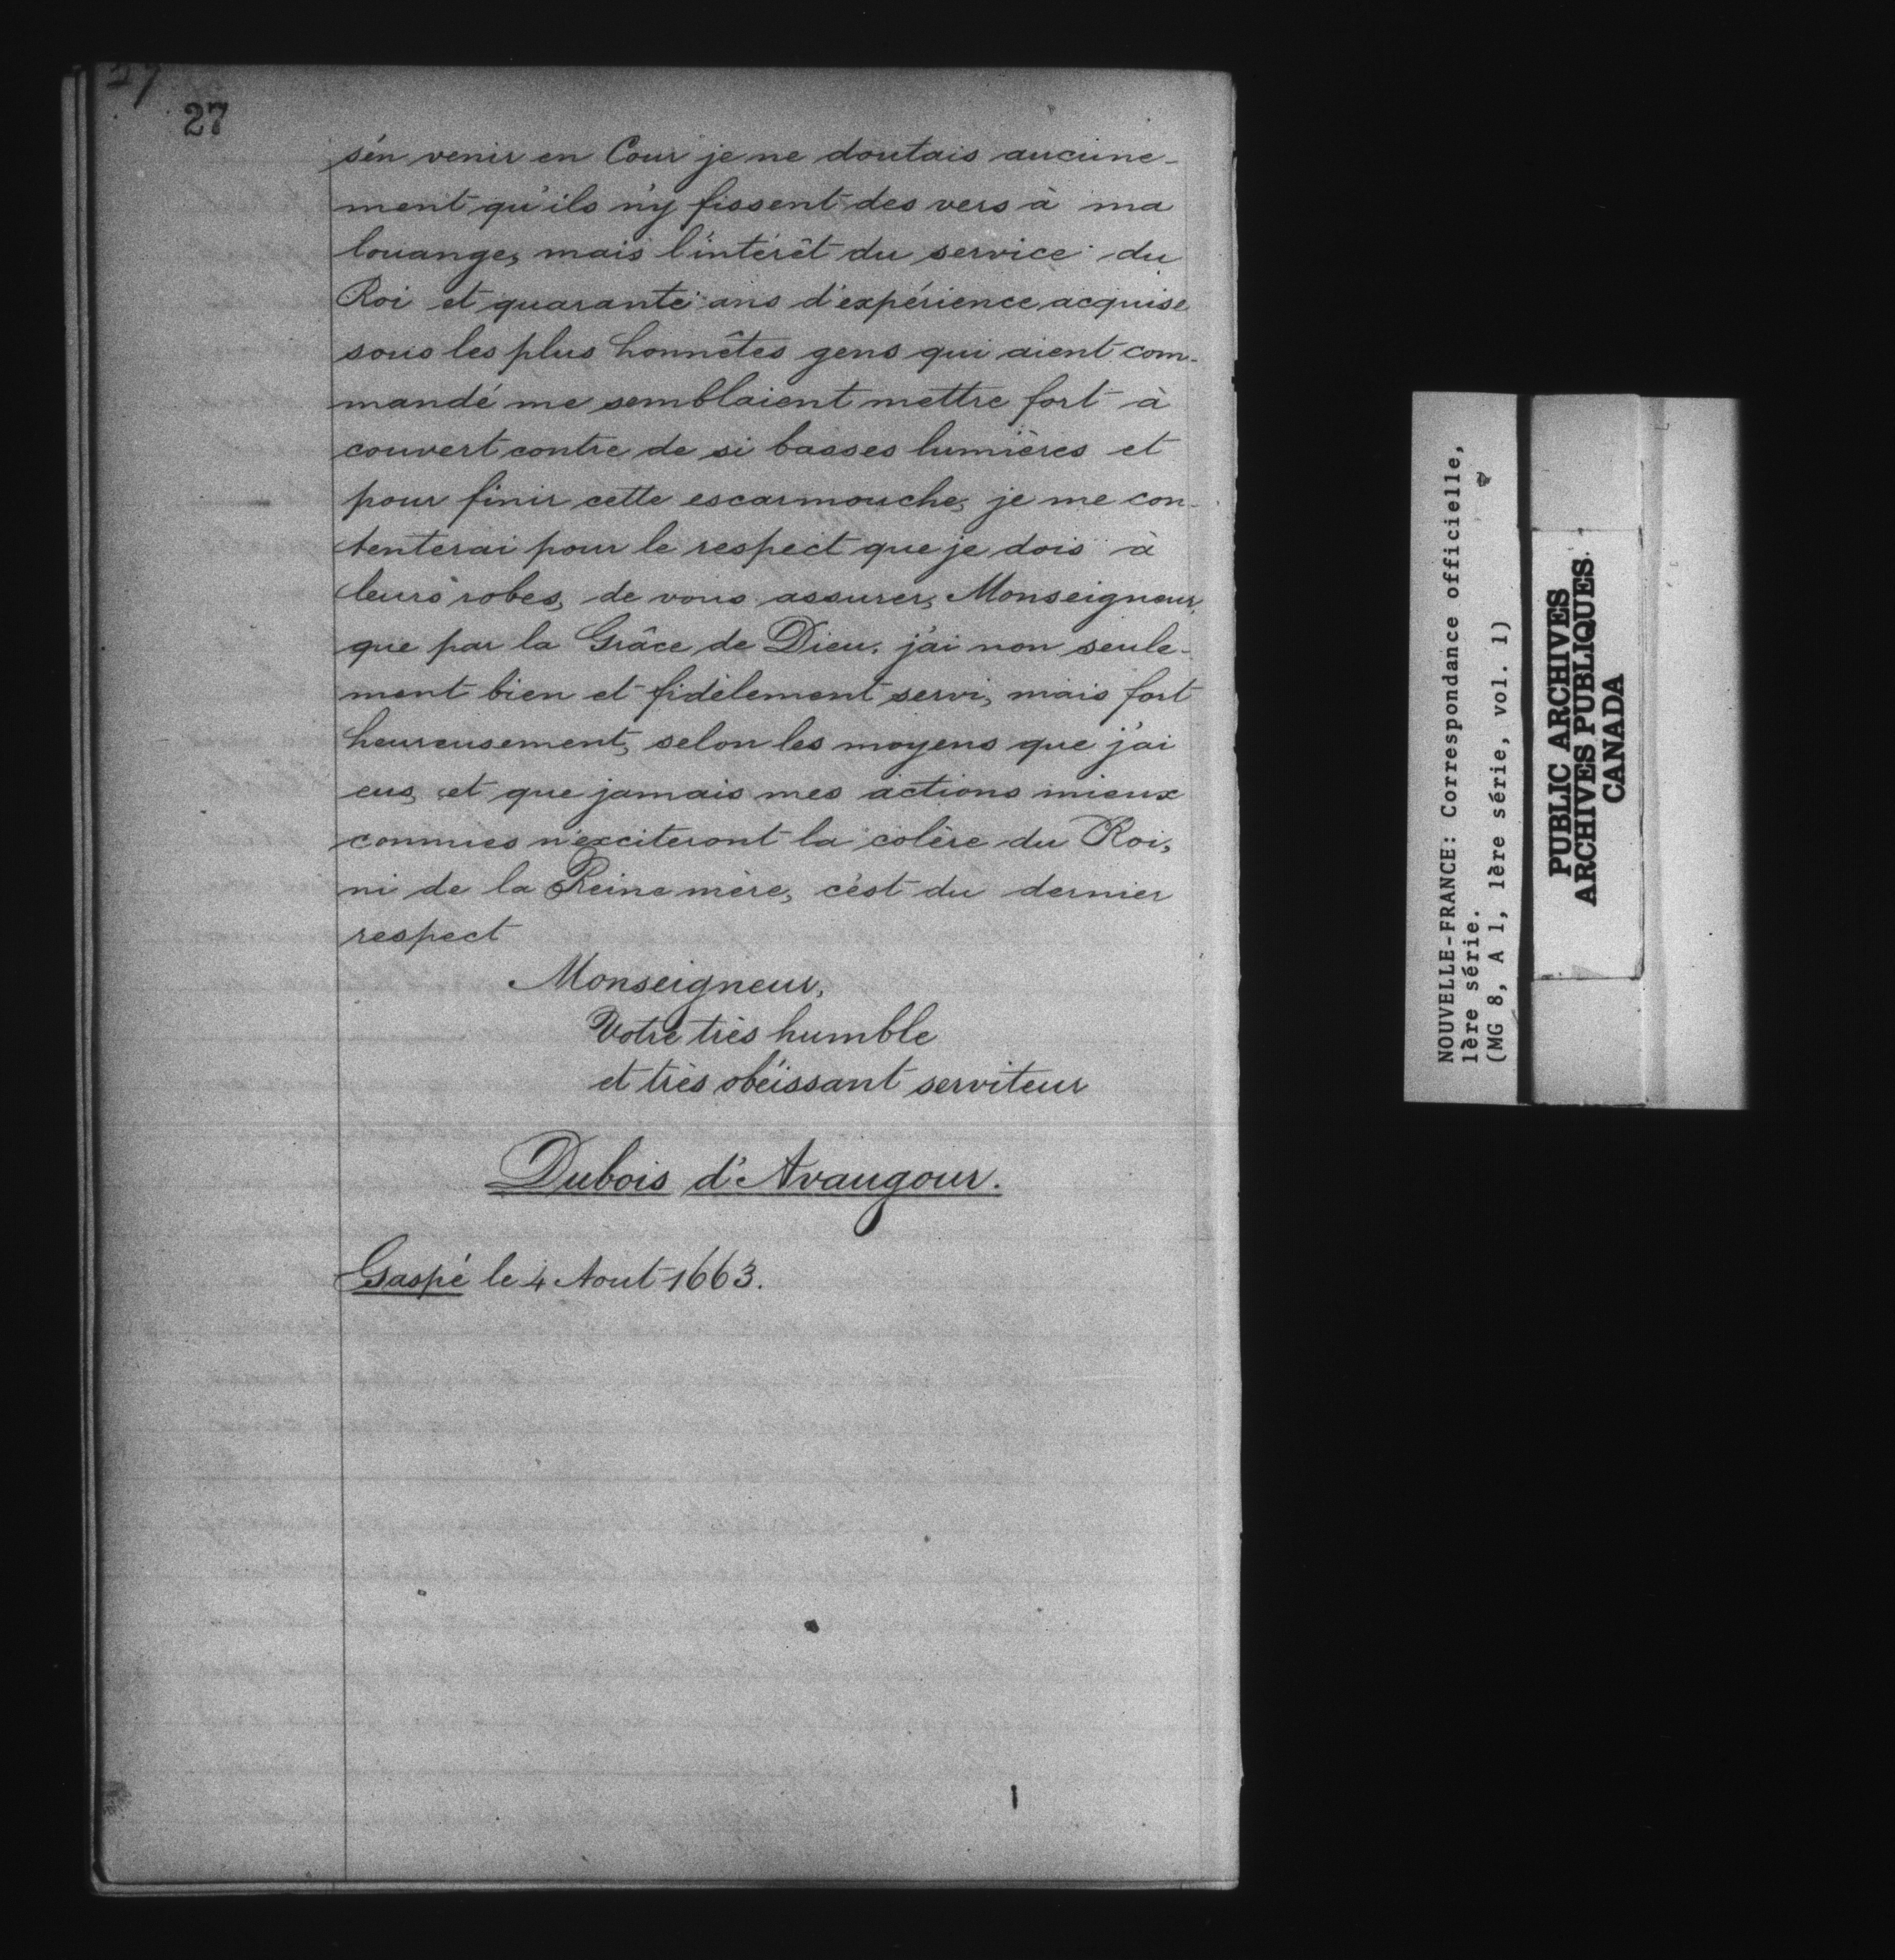 27
27
s'en venir en Cour je ne doutais aucune-
ment qu'ils n'y fissent des vers à ma
louange, mais l'intérêt du service du
Roi et quarante ans d'expérience acquise
sous les plus honnêtes gens qui aient com-
mandé me semblaient mettre fort à
couvert contre de si basses lumières et
pour finir cette escarmouche, je me con-
tenterai pour le respect que je dois à
leurs robes, de vous assurer, Monseigneur,
que par la Grâce de Dieu, j'ai non seule-
ment bien et fidèlement servi, mais fort
heureusement, selon les moyens que j'ai
eus, et que jamais mes actions mieux
connues n'exciteront la colère du Roi,
ni de la Reine mère, c'est du dernier
respect
Monseigneur,
Votre très humble
et très obéissant serviteur
Dubois d'Avaugour.
Gaspé le 4 Aout 1663.
NOUVELLE-FRANCE: Correspondance officielle,
1ère série.
(MG 8, A 1, 1ère série, vol. 1)
PUBLIC ARCHIVES
ARCHIVES PUBLIQUES
CANADA